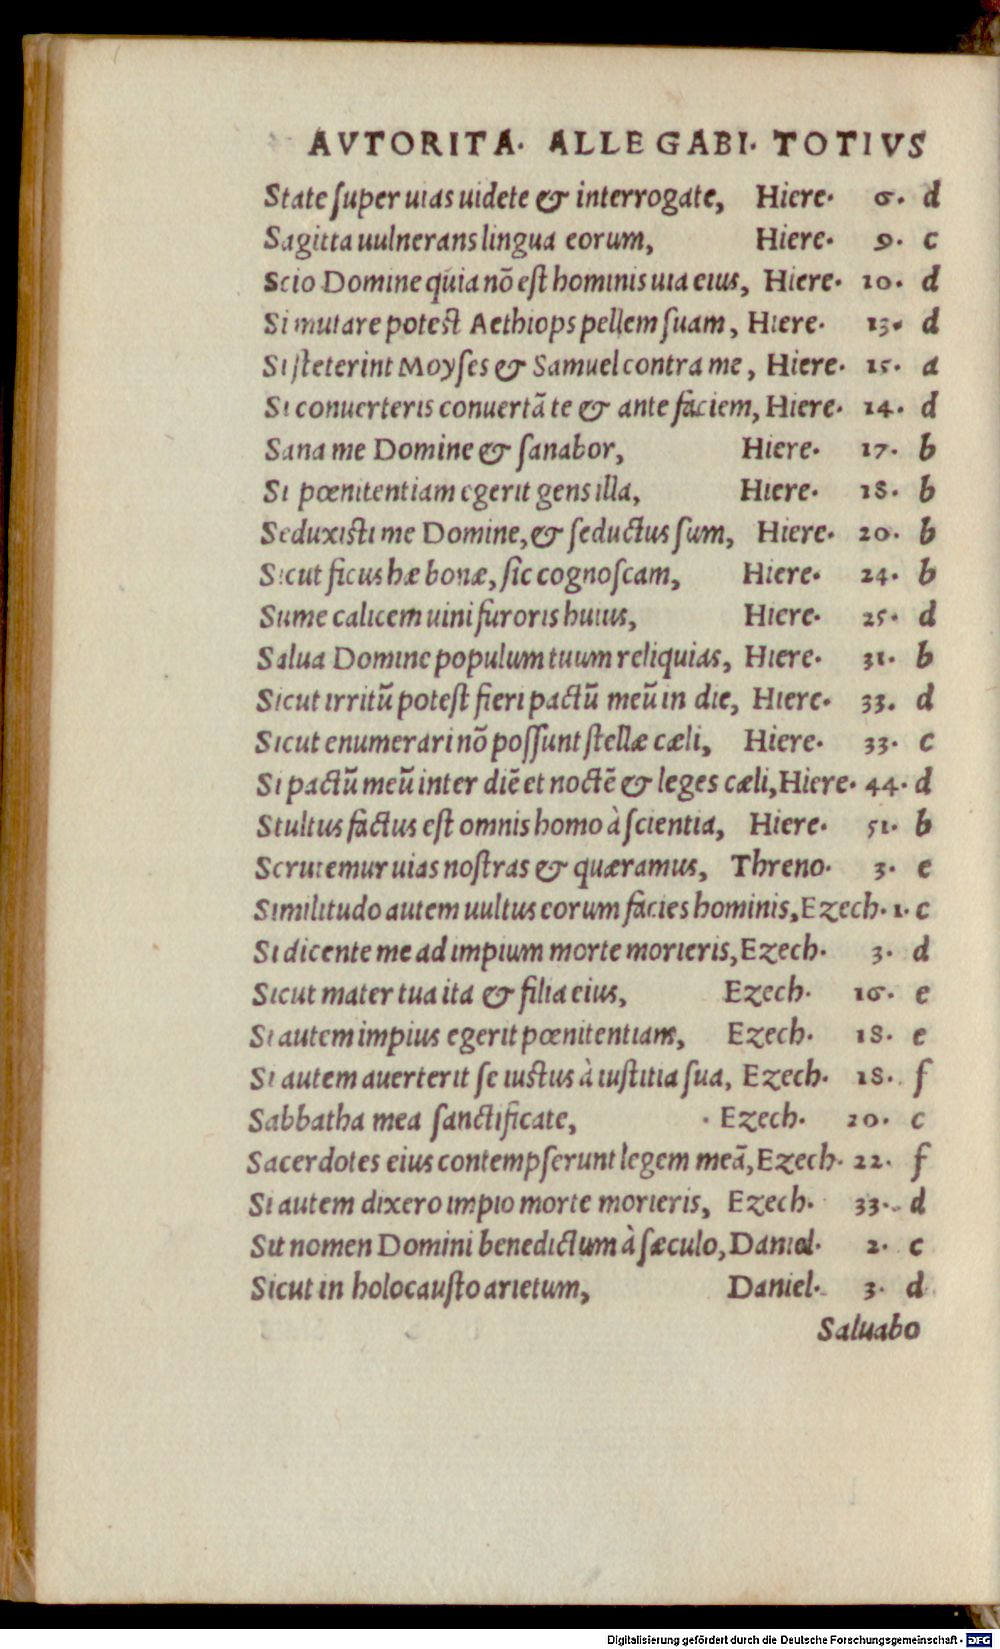 AVTORITA. ALLEGABI. TOTIVS
State ſuper uias uidete & interrogate, Hiere. 6. d
Sagitta uulnerans lingua eorum, Hiere. 9. c
Scio Domine quia nō eſt hominis uia eius, Hiere. 10. d
Si mutare poteſt Aethiops pellem ſuam, Hiere. 13. d
Si ſteterint Moyſes & Samuel contra me, Hiere. 15. a
Si conuerteris conuertā te & ante faciem, Hiere. 14. d
Sana me Domine & ſanabor, Hiere. 17. b
Si pœnitentiam egerit gens illa, Hiere. 18. b
Seduxiſti me Domine, & ſeductus ſum, Hiere. 20. b
Sicut ficus hæ bonæ, ſic cognoſcam, Hiere. 24. b
Sume calicem uini furoris huius, Hiere. 25. d
Salua Domine populum tuum reliquias, Hiere. 31. b
Sicut irritū poteſt fieri pactū meū in die, Hiere. 33. d
Sicut enumerari nō poſſunt ſtellæ cæli, Hiere. 33. c
Si pactū meū inter diē et noctē & leges cæli, Hiere. 44. d
Stultus factus eſt omnis homo à ſcientia, Hiere. 51. b
Scrutemur uias noſtras & quæramus, Threno. 3. e
Similitudo autem uultus eorum facies hominis, Ezech. 1. c
Si dicente me ad impium morte morieris, Ezech. 3. d
Sicut mater tua ita & filia eius, Ezech. 16. e
Si autem impius egerit pœnitentiam, Ezech. 18. e
Si autem auerterit ſe iuſtus à iuſtitia ſua, Ezech. 18. f
Sabbatha mea ſanctificate, Ezech. 20. c
Sacerdotes eius contempſerunt legem meā, Ezech. 22. f
Si autem dixero impio morte morieris, Ezech. 33. d
Sit nomen Domini benedictum à ſæculo, Daniel. 2. c
Sicut in holocauſto arietum, Daniel. 3. d
Saluabo
Digitalisierung gefördert durch die Deutsche Forschungsgemeinschaft - DFG